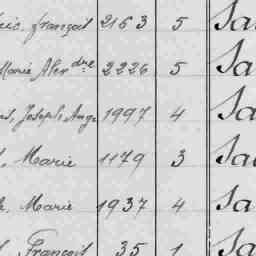 ric françoit 2163 5 Sa
Marie Alex dre 2226 5 Sa
Joseph Ange 1997 4 Sa
Marie 1179 3 Sa
Marie 1937 4 Sa
Françoit 35 1 Sa